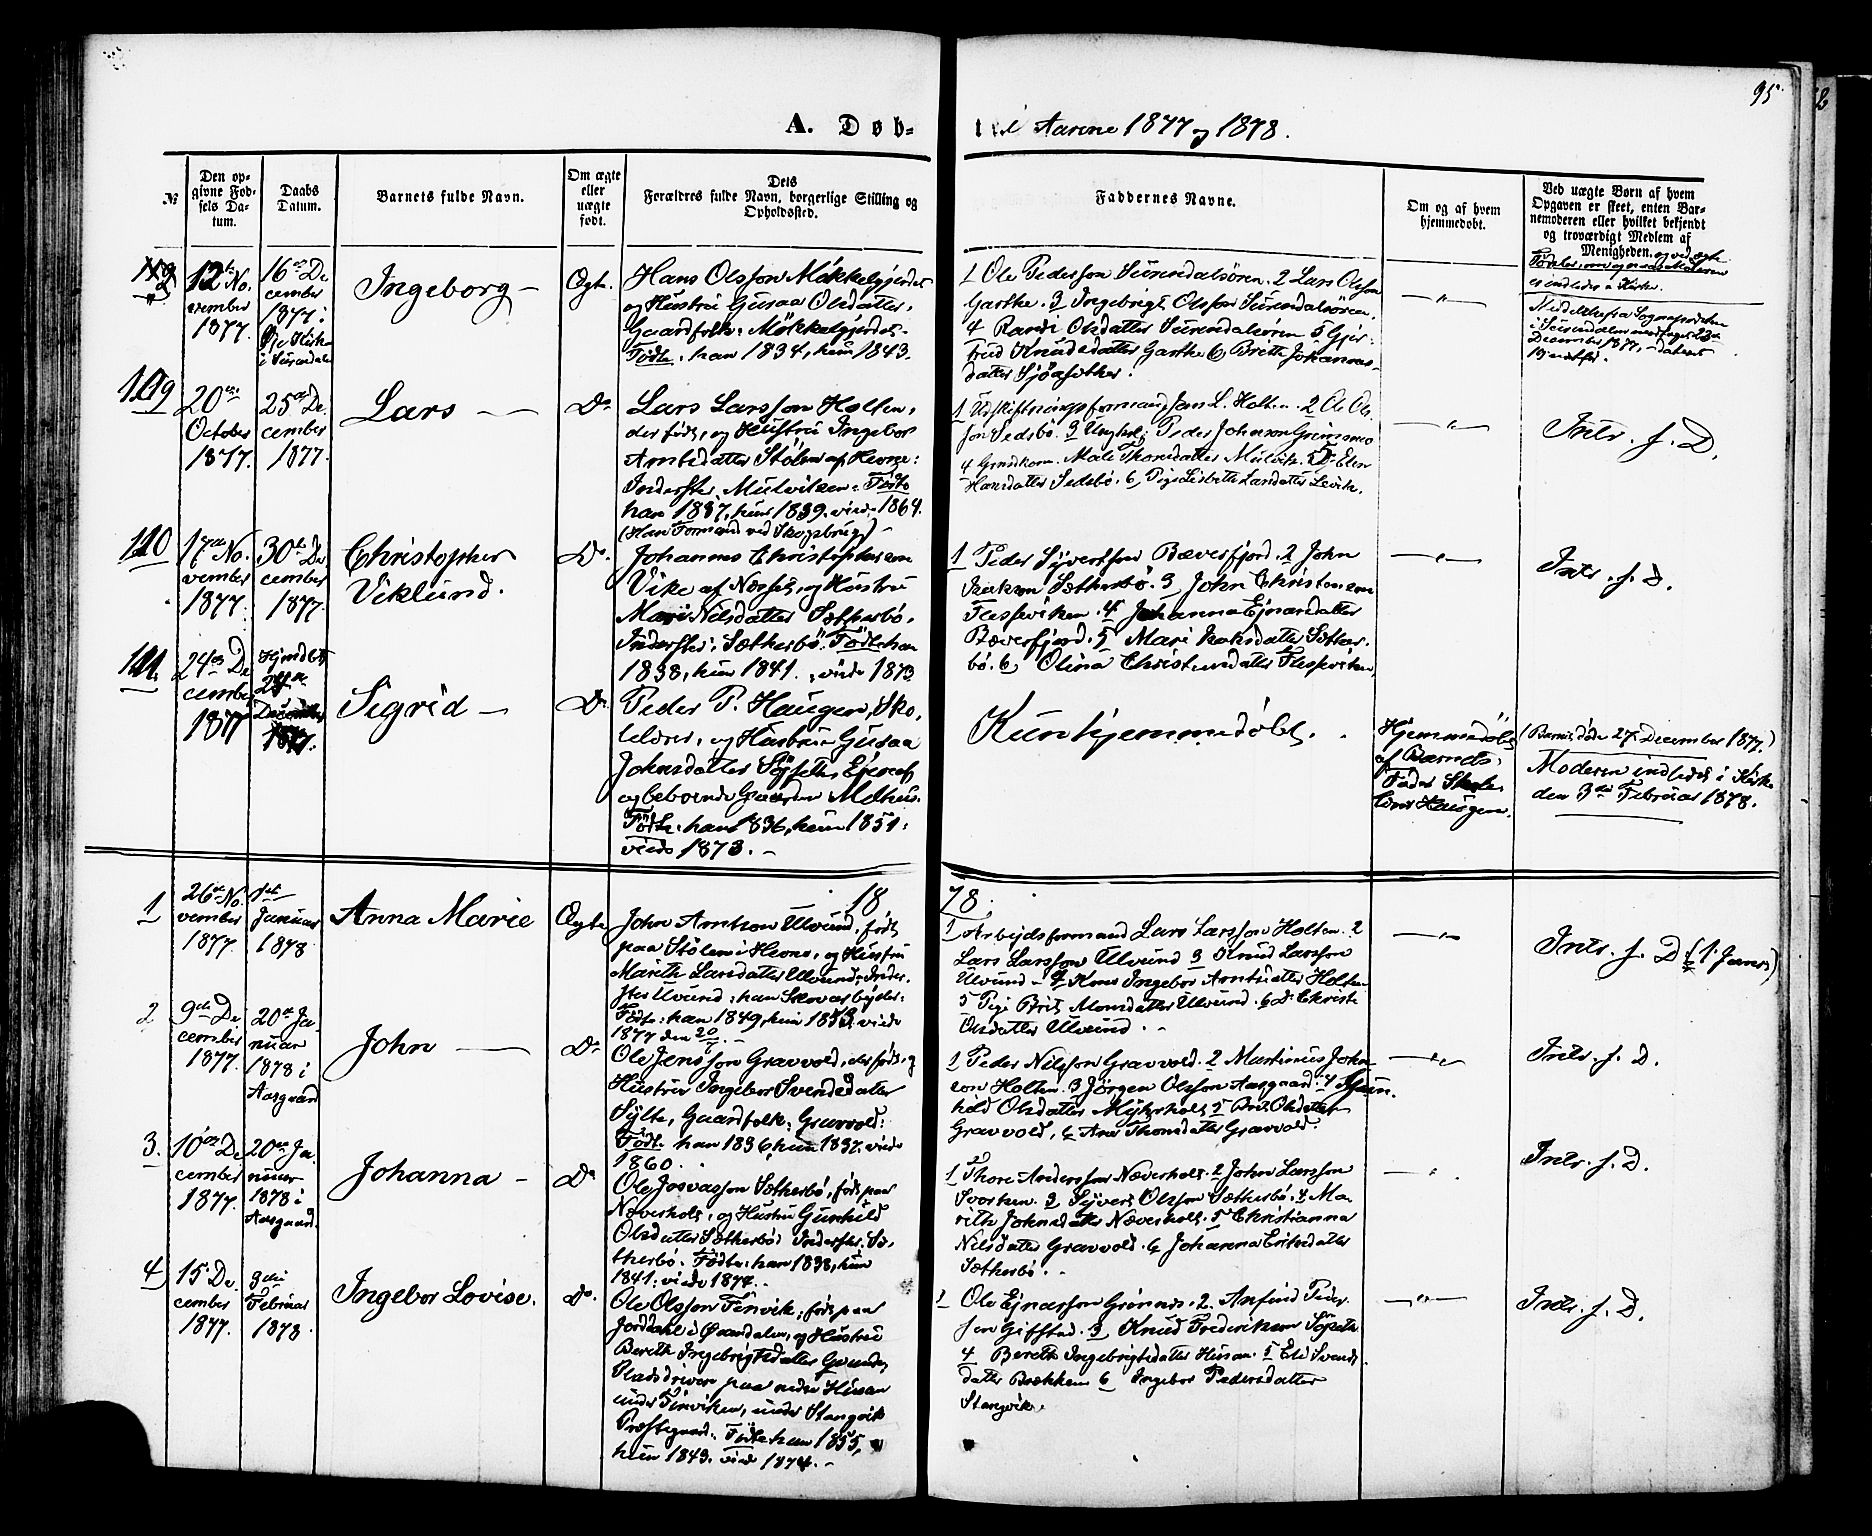 95.
A. Døb-
i Aarene 1877 og 1878.
№
Den op-
givne Fød-
sels Da-
tum.
Daabs
Datum.
Barnets fulde Navn.
Om ægte
eller
uægte
født.
Dets
Forældres fulde Navn, borgerlige Stilling og
Opholdssted.
Faddernes Navne.
Om og af hvem
hjemmedøbt.
Ved uægte Børn af hvem
Opgaven er skeet, enten Bar-
nemoderen eller hvilket bekjendt
og troværdigt Medlem af
Menigheden.
12te No-
vember
1877.
16de De
cember
1877 i
Ingeborg -
Ægte.
Hans Olsson Møkkelgjerdet
og Hustru Gusaa Olsdatter,
Gaardfolk: Møkkelgjerdet -
Fødte: han 1834, hun 1843.
1 Ole Pedersson Surendalsøren. 2 Lars Olsson
Garthe. 3 Ingebrigt Olsson Surendalsøren.
4 Randi Olsdatter Surendalsøren 5 Gjer-
trud Knudsdatter Garthe 6 Britte Johannes-
datter Sjøasæther.
— " —
December 1877, - dateret
109
20de
October
1877.
25de De
cember
1877.
Lars —
Do
Lars Larsson Holten,
der født, og Hustru Ingebor
Arntsdatter Stølen af Hevne:
Inderster, Mulviken. Fødte
han 1837, hun 1839. viede 1864.
(Han Formand ved Skogsbrug) -
1 Udskiftningsformand Jens L. Holten. 2 Ole Ols-
son Sedsbø. 3 Ungkarl Peder Johnson Grimsmo
4 Gmdkone Mali Thoresdatter Mulvik. 5 Do Elen
Hansdatter Sedsbø. 6 Pige Lisbeth Larsdatter Levik.
— " —
Intr. f. D.
110
17de No-
vember
1877.
30te De
cember
1877.
Christopher
Viklund.
Do.
Johannes Christophersen
Vike af Næsset, og Hustru
Mari Nilsdatter Sætherbø,
Inderster: Sætherbø. Fødte han
1838, hun 1841., viede 1873
1 Peder Syvertsen Bæverfjord. 2 John
Isaksen Sætherbø. 3 John Christensen
Flessviken. 4 Johanna Ejnarsdatter
Bæverfjord. 5 Mari Isaksdatter Sæther-
bø. 6 Olina Christensdatter Flesviken,
— " —
Intr. f. D.
111.
24de De
cember
1877
Hjemdøbt
24de
December
1877.
Sigrid —
Do
Peder P. Haugen, Sko-
lelærer, og Hustru Gusaa
Johnsdatter Sjøsetter Ejere af
og beboende Gaarden Melhus.
Fødte: han 1836, hun 1851:
viede 1873. -
Kun hjemmedøbt.
Hjemmedøbt
af Barnets
Fader Skole-
lærer Haugen.
(Barnet døde 27. December 1877.)
Moderen indledet i Kirke
den 3die Februar 1878.
1878.
1
26de No.
vember
1877.
1ste
Januar
1878
Anna Marie
Ægte
John Arntson Ulvund, født
paa Stølen i Hevne, og Hustru
Marith Larsdatter Ulvund: Inder-
ster Ulvund: han Skovarbejder:
Fødte: han 1849, hun 1853. viede
1877 den 20/7. -
1 Arbejdsformand Lars Larsson Holten. 2
Lars Larsson Ulvund 3 Knud Larsson
Ulvund - 4 Kone Ingebor Arntsdatter Holten
5 Pige Brit Monsdatter Ulvund. 6 Do Christi
Olsdatter Ulvund. -
— " —
Intr. f. D. (1. Januar)
2
9de De
cember
1877.
20de Ja-
nuar
1878 i
Aasgaard
John —
Do
Ole Jensson Gravvold, der født, og
Hustru Ingebor Svendsdatter
Sylte, Gaardfolk: Gravvold:
Fødte han 1836, hun 1837. viede
1860.
1 Peder Nilsson Gravvold. 2 Martinus John-
son Holten. 3 Jørgen Olsson Aasgaard. 4 Gun-
hild Olsdatter Myhrholt 5 Brit Olsdatter
Gravvold, 6 Ane Thoresdatter Gravvold
— " —
Intr. f. D.
3.
10de De
cember
1877.
20de Ja-
nuar
1878 i
Aasgaard.
Johanna -
Do
Ole Josvasson Sætherbø, født paa
Næverholt, og Hustru Gunhild
Olsdatter Sætherbø: Inderster. Sæ-
therbø. Fødte: han 1838, hun
1841: viede 1874. -
1 Thore Andersson Næverholt. 2 John Larsson
Svorken. 3 Syvert Olsson Sætherbø. 4 Ma-
rith Johnsdatter Næverholt. 5 Christianna
Nilsdatter Gravvold. 6 Johanna Eriksdatter
Sætherbø. -
Intr. f. D.
4
15 De
cember
1877.
3die
Februar
1878.
Ingebor Lovise.
Do.
Ole Olsson Finvik, født paa
Jordahl i Øxendalen, og Hustru
Bereth Ingebrigtsdatter
Pladsdriver paa nedre Husan
under Finviken, under Stangvik
Præstegaard: Fødte han 1855,
hun 1843. viede 1874. -
1 Ole Ejnarsson Grønnes. 2. Anfind Peder-
sen Gifstad. 3 Knud Frederiksen
4 Bereth Ingebrigtsdatter Husan. 5 Eli Svends-
datter Bækken 6 Ingebor Pedersdatter
Stangvik.
— " —
Intr. f. D.